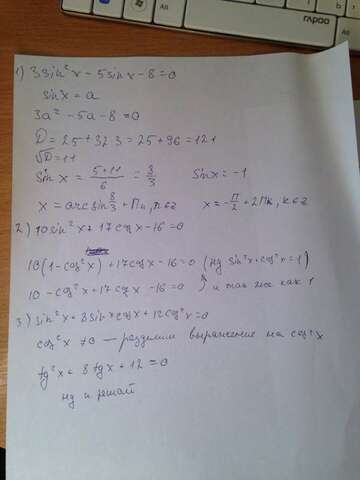 rapoo
1) 3sin²x - 5sinx - 8 = 0
sinx = a
3a² - 5a - 8 = 0
D = 25 + 32·3 = 25 + 96 = 121
√D = 11
Sinx = (5+11)/6 = 8/3    Sinx = -1
x = arcsin 8/3 + Пn, n∈z    x = -П/2 + 2Пk, k∈z
2) 10sin²x + 17cosx - 16 = 0
10(1 - cos²x) + 17cosx - 16 = 0 (из sin²x + cos²x = 1)
10 - cos²x + 17cosx - 16 = 0    и так же как 1
3) sin²x + 8sinxcosx + 12cos²x = 0
cos²x ≠ 0 — разделим выражение на cos²x
tg²x + 8tgx + 12 = 0
ну и решай